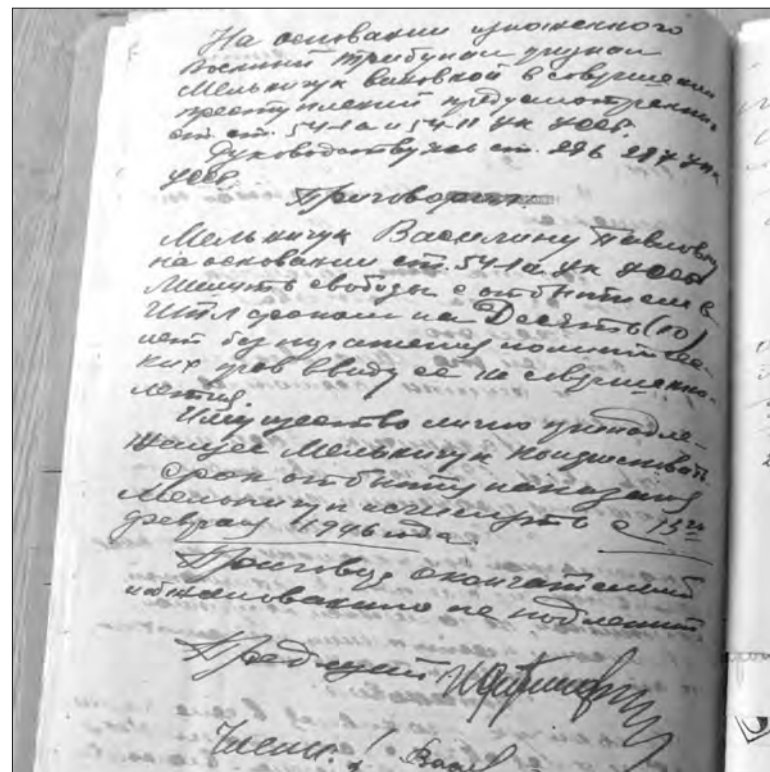 На основании изложенного
военный трибунал признал
Мельничук виновной в совершении
преступлений предусмотренных
ст. ст. 54-1а и 54-11 УК УССР.
Руководствуясь ст. 296 297 УПК
УССР
Приговорил:
Мельничук Василину Павловну
на основании ст. 54-1а УК УССР
лишить свободы с отбытием в
ИТЛ сроком на Десять (10)
лет без поражения политичес-
ких прав ввиду ее не совершенно-
летия.
Имущество лично принадле-
жащее Мельничук конфисковать
Срок отбытия наказания
Мельничук исчислять с 13го
февраля 1946 года.
Приговор окончательный
и обжалованию не подлежит
Председ
Члены: